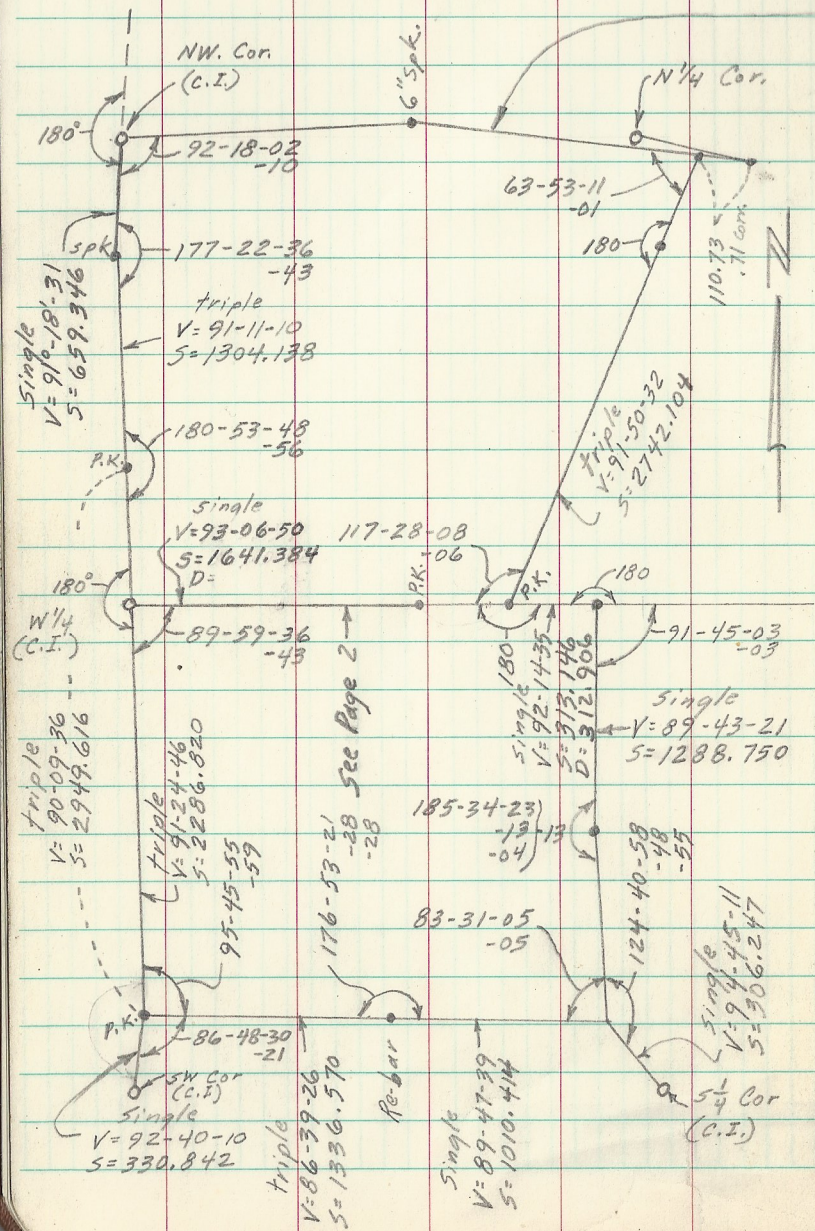 NW. Cor.
(C.I.)
6" Spk.
N 1/4 Cor.
180°
92-18-02
-10
63-53-11
-01
180
110.73
.71 corr.
N
spk
177-22-36
-43
Single
V=91°-18'-31
S=659.346
triple
V=91-11-10
S=1304.138
triple
V=91-50-32
S=2742.104
180-53-48
-56
P.K.
single
V=93-06-50
S=1641.384
D=
117-28-08
-06
P.K.
P.K.
180
180°
W 1/4
(C.I.)
89-59-36
-43
See Page 2
180
Single
V=92-14-35
S=313.146
D=312.906
91-45-03
-03
Single
V=89-43-21
S=1288.750
triple
V=90-09-36
S=2949.616
triple
V=91-24-46
S=2286.820
95-45-55
-59
176-53-21
-28
-28
185-34-23
-13
-04
-13
83-31-05
-05
124-40-58
-48
-55
Single
V=94-45-11
S=306.247
P.K.
86-48-30
-21
SW Cor
(C.I.)
Single
V=92-40-10
S=330.842
triple
V=86-39-26
S=1336.570
Re-bar
Single
V=89-47-39
S=1010.414
S 1/4 Cor
(C.I.)